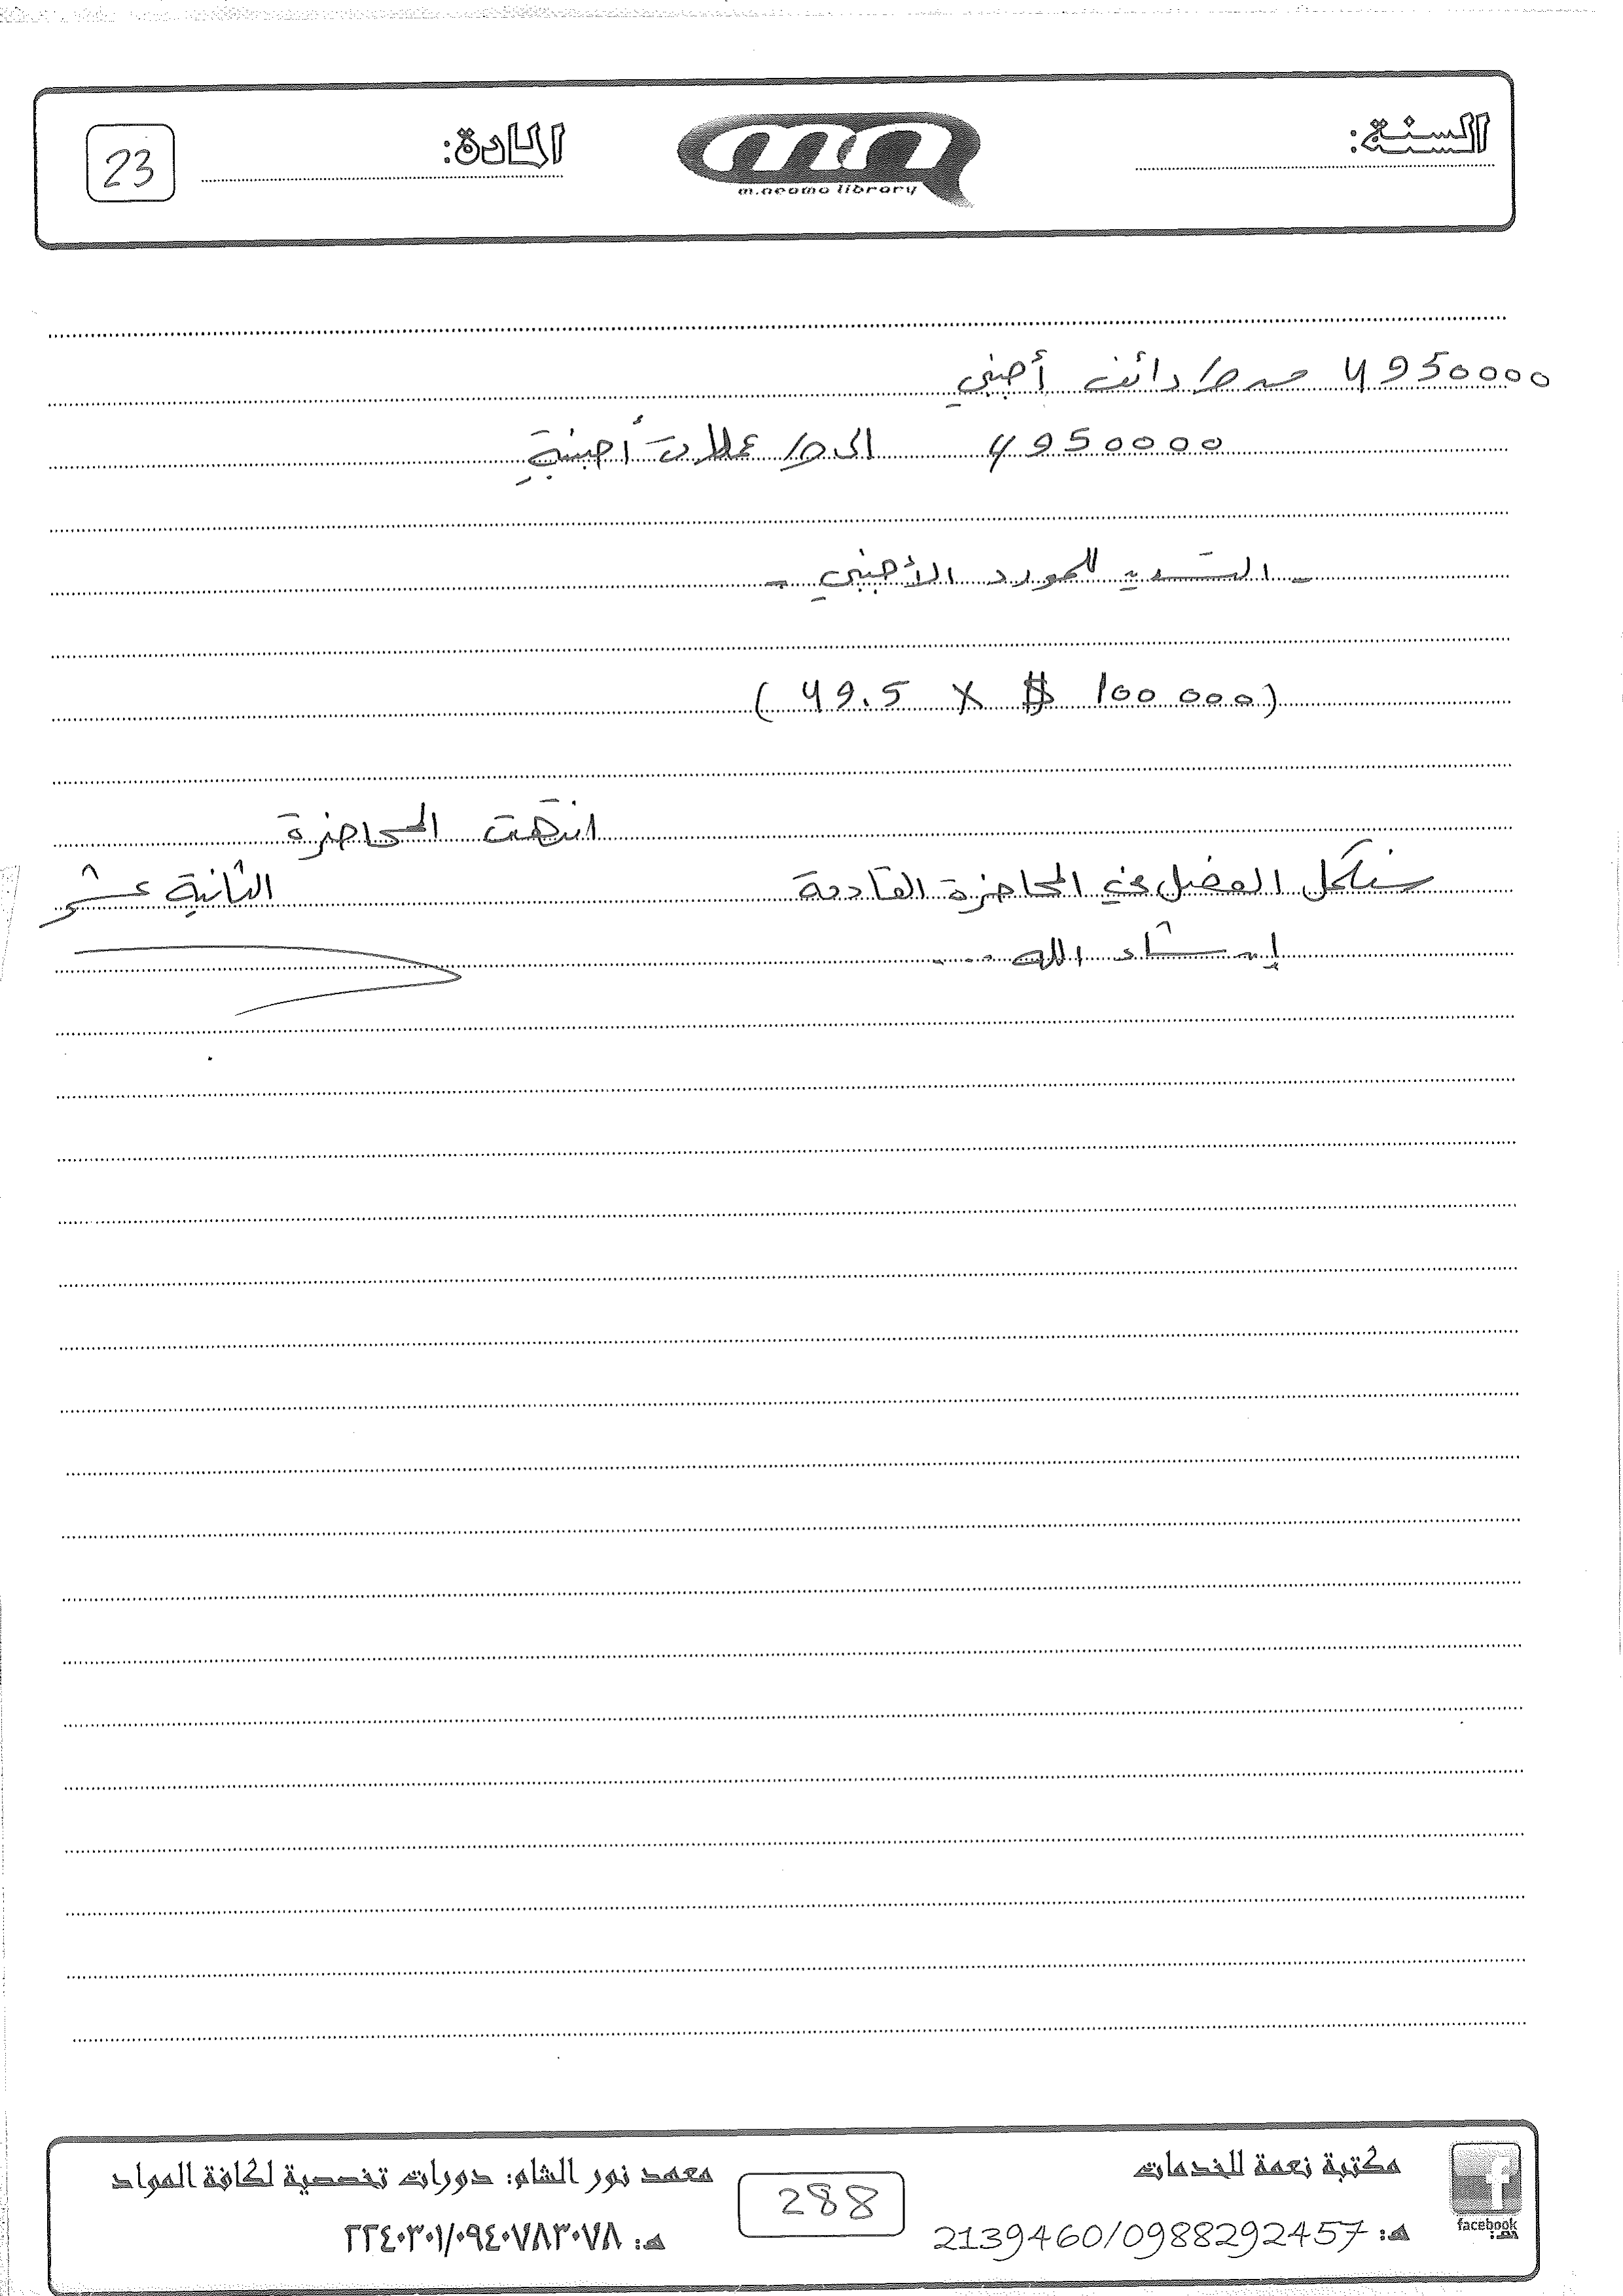 السنة:
m.neamo library
المادة:
23
4950000 من ح/ دائن أجنبي
4950000 الى ح/ عملات أجنبية
- التسديد للمورد الأجنبي -
(49.5 X $ 100 000)
انتهت المحاضرة
الثانية عشر
سنكمل الفصل في المحاضرة القادمة
إن شاء الله ...
facebook
مكتبة نعمة للخدمات
هـ: 2139460/0988292457
288
معهد نور الشام: دورات تخصصية لكافة المواد
هـ: ٢٢٤٠٣٠١/٠٩٤٠٧٨٣٠٧٨